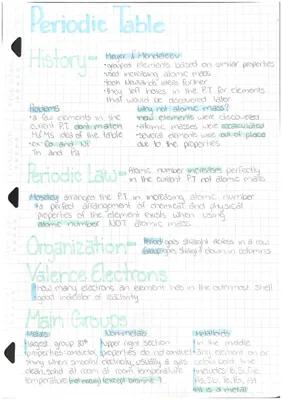 Periodic Table
History-
Meyer & Mendeleev
•grouped elements based on similar properties
•used increasing atomic mass
•both thousands were further
•they left holes in the P.T. for elements
that would be discovered later
Problems
•a few elements in the
current P.T. dont match
M&Ms idea of the table
•ex: Co and Ni
Th and Pa
Why not atomic mass?
•new elements were discovered
•atomic masses were recalculated
•several elements were out of place
due to the properties
Periodic Law-
Atomic number increases perfectly
in the current P.T. not atomic mass.
Moseley arranges the P.T. in increasing atomic number
↳a perfect arrangement of chemical and physical
properties of the element exists when using
atomic number NOT atomic mass.
Organization-
Period goes straight across in a row
Group goes straight down in columns
Valence Electrons
how many electrons an element has in the outermost shell
good indicator of reactivity
Main Groups
Metals
largest group 80%
properties: conductor,
shiny when smooth/
clean, solid at room
temperature
Non-metals
upper right section
properties: do not conduct
electricity, usually a gas
at room temperature
(not many) (except bromine)
Metalloids
in the middle
any element on or
below stair line
includes: B, Si, Ge,
As, Sb, Te, Po, At
Al is a metal